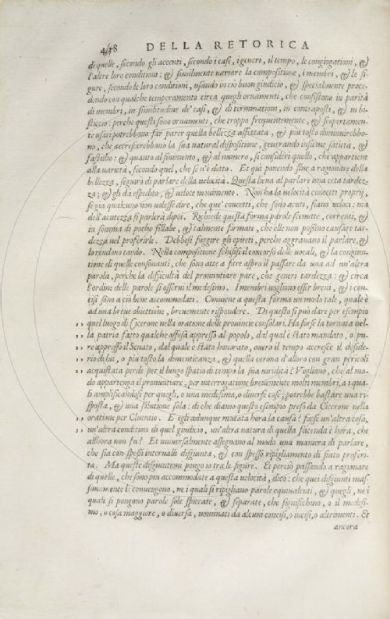 458 DELLA RETORICA
di quelle, secondo gli accenti, secondo i casi, i generi, il tempo, le congiugationi, &
l'altre loro conditioni: & similmente variare la compositione, i membri, & le fi-
gure, secondo le loro conditioni, usando in ciò buon giudicio, & specialmente proce-
dendo con qualche temperamento circa quegli ornamenti, che consistono in parità
di membri, in similitudine de' casi, & di terminationi, in contraposti, & in bi-
sticcio: perche questi sono ornamenti, che troppo frequentemente, & 
 usati potrebbono far parer quella bellezza affettata; & più tosto diminuirebbo-
no, che accrescerebbono la sua natural dispositione, generando insieme satietà, &
fastidio: & quanto al finimento, & al numero, si consideri quello, che appartiene
alla natura, secondo quel, che si n'è detto. Et quì ponendo fine a ragionare della
bellezza, seguirò di parlare della velocità. Questa leva al parlare una certa tardez-
za; & gli da espedito, & veloce movimento. Non ha la velocità concetti proprij,
se già qualcuno non volesse dire, che que' concetti, che sono acuti, siano veloci: ma
dell'acutezza si parlerà dipoi. Richiede questa forma parole semplici, correnti, &
in somma di poche sillabe, & talmente formate, che elle non possino causare tar-
dezza nel proferirle. Debbesi fuggire gli epiteti, perche aggravano il parlare, &
lo rendono tardo. Nella compositione schifisi il concorso delle vocali, & la congiun-
tione di quelle consonanti, che sono atte a fare asprò il passare da una ad un'altra
parola, perche la difficultà del pronuntiare pare, che generi tardezza: & circa
l'ordine delle parole si osservi il medesimo. I membri vogliono esser brevi, & i con-
cisi sono a ciò bene accommodati. Conviene a questa forma un molto tale, quale è
ad una breve obiettione, brevemente rispondere. Di questo si può dare per esempio
quel luogo di Cicerone nella oratione delle provincie consolari. Ha forse la tornata nel-
la patria fatto qualche offesa appresso al popolo, dal quale è stato mandato, o pu-
re appresso il Senato, dal quale è stato honorato, overo il tempo accresce il deside-
rio di lui, o più tosto la dimenticanza, & quella corona d'alloro con gran pericoli
acquistata perde per il lungo spatio di tempo la sua viridità? Vogliono, che al mo-
do appartenga il pronuntiare, per interrogatione brevemente molti membri, a i qua-
li amplificandosi per quegli, o una medesima, o diverse cose, potrebbe bastare una ri-
sposta, & una solutione sola: di che diamo questo esempio preso da Cicerone nella
oratione per Cluentio. E' 
 mutata hora la causa? Fusse un'altra cosa,
un'altra condition di quel giudicio, un'altra natura di quella facenda è hora, che
allhora non fu? Et universalmente assegnano al modo una maniera di parlare,
che sia con spessi intervalli disgiunta, & con spesso ripigliamento di fiato proferi-
ta. Ma queste disgiuntioni pongo io tra le figure. Et perciò passando a ragionare
di quelle, che sono piu accommodate a questa velocità, dico: che quei disgiunti mas-
simamente le convengono, ne i quali si ripigliano parole equivalenti, & quegli, ne i
quali si pongono parole sole spiccate, & separate, che significhino, o il medesi-
mo, o cosa maggiore, o diversa, nominati da alcuni concisi, o incisi, o altrimenti. Et
ancora